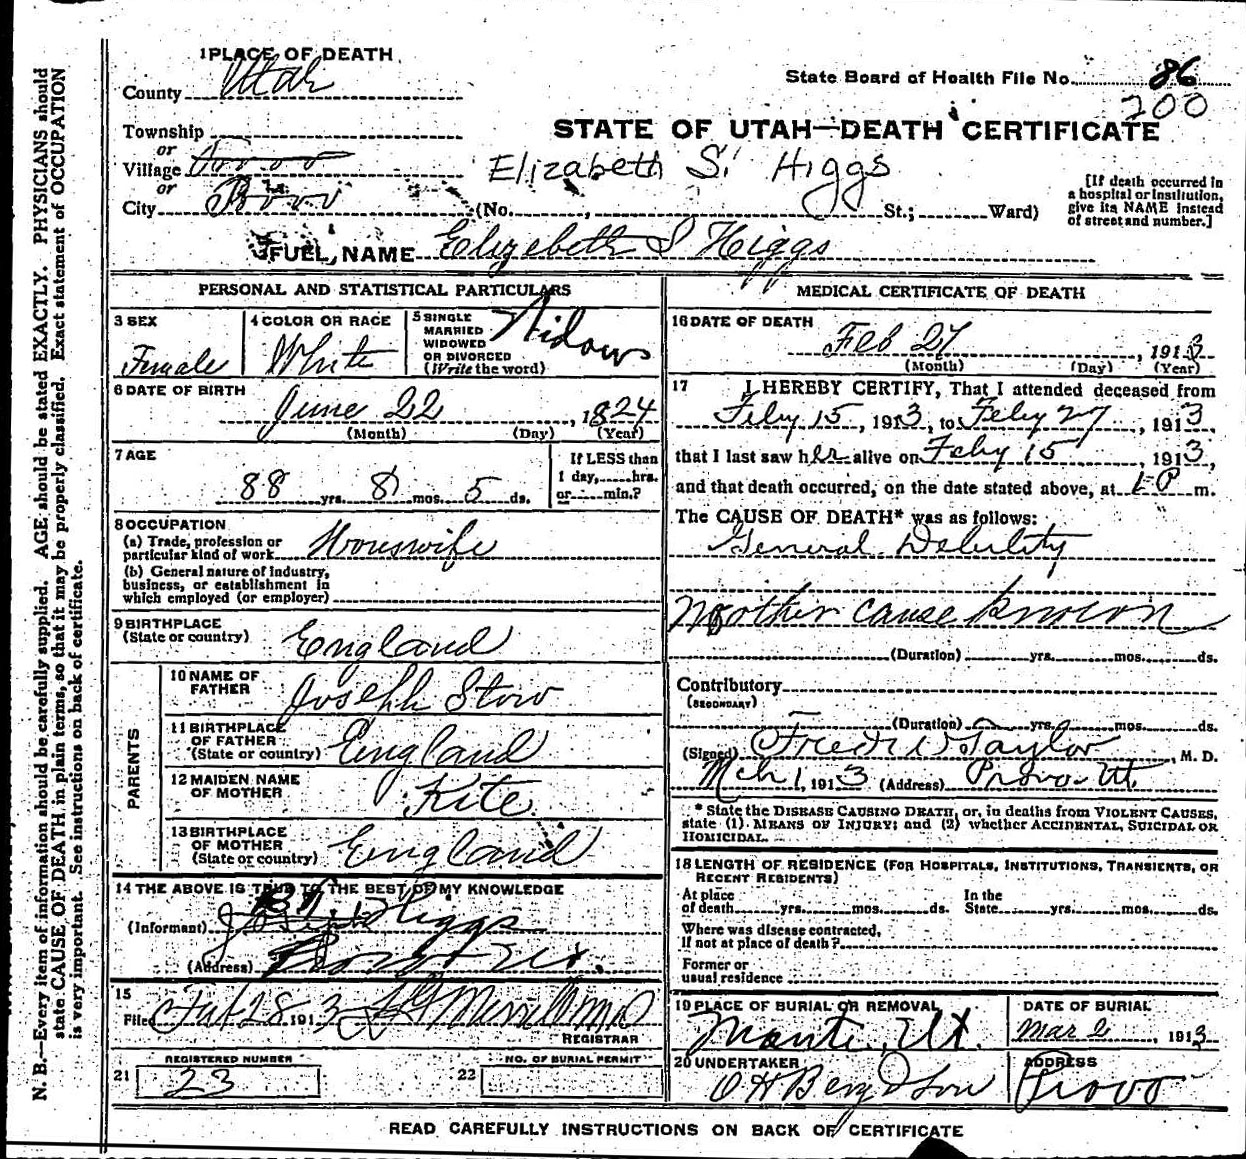 1 PLACE OF DEATH
County Utah
State Board of Health File No. 86
200
Township
or
Village Provo
or
City Provo
STATE OF UTAH—DEATH CERTIFICATE
Elizabeth S. Higgs
(No. , St.; Ward)
[If death occurred in
a hospital or institution,
give its NAME instead
of street and number.]
FULL NAME Elizebeth S Higgs
PERSONAL AND STATISTICAL PARTICULARS
3 SEX
Female
4 COLOR OR RACE
White
5 SINGLE
MARRIED
WIDOWED
OR DIVORCED
(Write the word)
Widow
6 DATE OF BIRTH
June 22, 1824
(Month) (Day) (Year)
7 AGE
88 yrs. 8 mos. 5 ds.
If LESS than
1 day, hrs.
or min.?
8 OCCUPATION
(a) Trade, profession or
particular kind of work Houswife
(b) General nature of industry,
business, or establishment in
which employed (or employer)
9 BIRTHPLACE
(State or country) England
PARENTS
10 NAME OF
FATHER Joseph Stow
11 BIRTHPLACE
OF FATHER
(State or country) England
12 MAIDEN NAME
OF MOTHER Kite
13 BIRTHPLACE
OF MOTHER
(State or country) England
14 THE ABOVE IS TRUE TO THE BEST OF MY KNOWLEDGE
(Informant) Higgs
(Address) Provo Ut.
15
Filed Feb 28 1913
REGISTRAR
REGISTERED NUMBER
21 23
NO. OF BURIAL PERMIT
22
MEDICAL CERTIFICATE OF DEATH
16 DATE OF DEATH
Feb 27, 1913
(Month) (Day) (Year)
17 I HEREBY CERTIFY, That I attended deceased from
Feby 15, 1913, to Feby 27, 1913
that I last saw her alive on Feby 15 1913,
and that death occurred, on the date stated above, at 1 P m.
The CAUSE OF DEATH* was as follows:
General Debility
No other cause known
(Duration) yrs. mos. ds.
Contributory
(SECONDARY)
(Duration) yrs. mos. ds.
(Signed) Fred W Taylor, M. D.
Mch 1, 1913 (Address) Provo Ut.
* State the DISEASE CAUSING DEATH, or, in deaths from VIOLENT CAUSES,
state (1) MEANS OF INJURY; and (2) whether ACCIDENTAL, SUICIDAL OR
HOMICIDAL.
18 LENGTH OF RESIDENCE (FOR HOSPITALS, INSTITUTIONS, TRANSIENTS, OR
RECENT RESIDENTS)
At place
of death yrs. mos. ds.
In the
State yrs. mos. ds.
Where was disease contracted,
if not at place of death?
Former or
usual residence
19 PLACE OF BURIAL OR REMOVAL
Manti, Ut.
DATE OF BURIAL
Mar 2, 1913
20 UNDERTAKER
O H Berg & Son
ADDRESS
Provo
READ CAREFULLY INSTRUCTIONS ON BACK OF CERTIFICATE
N. B.—Every item of information should be carefully supplied. AGE should be stated EXACTLY. PHYSICIANS should
state CAUSE OF DEATH in plain terms, so that it may be properly classified. Exact statement of OCCUPATION
is very important. See instructions on back of certificate.